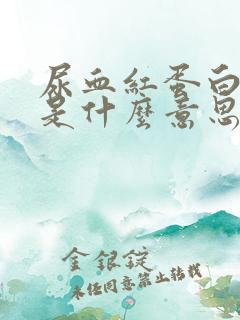 尿血紅蛋白
是什麼意思
金銀錠
未经同意禁止转载